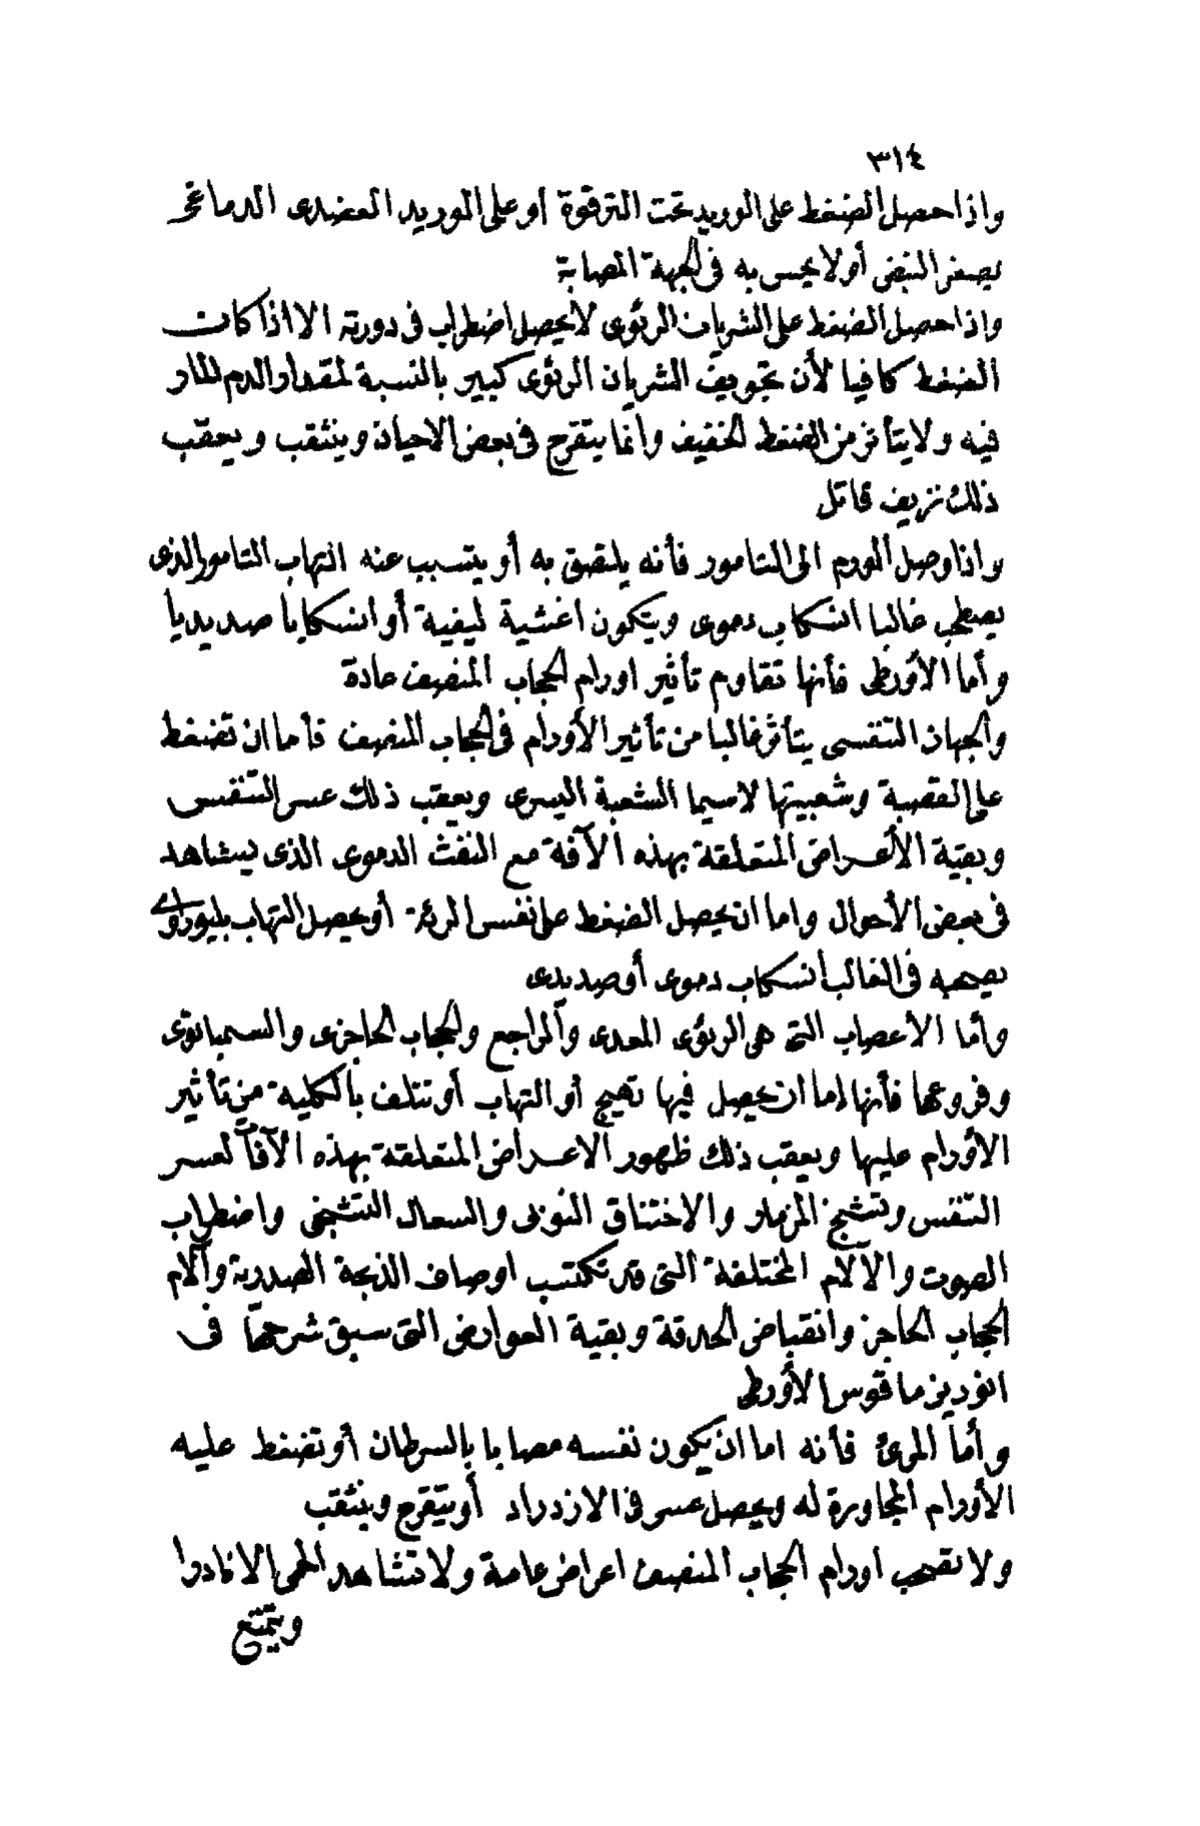 ٣١٤
واذا حصل الضغط على الوريد تحت الترقوة أو على الوريد العضدى الدماغى
يصغر النبض أو لا يحس به فى الجهة المصابة
واذا حصل الضغط على الشريان الرئوى لا يحصل اضطراب فى دورته الا اذا كان
الضغط كافيا لأن تجويف الشريان الرئوى كبير بالنسبة لمقدار الدم المار
فيه ولا يتأثر من الضغط الخفيف وانما يتقرح فى بعض الاحيان وينثقب ويعقب
ذلك نزيف قاتل
واذا وصل الورم الى التامور فأنه يلتصق به أو يتسبب عنه التهاب التامور الذى
يصطحب غالبا انسكاب دموى ويتكون اغشية ليفية أو انسكابا صديديا
وأما الأورطى فأنها تقاوم تأثير اورام الحجاب المنصف عادة
والجهاز التنفسى يتأثر غالبا من تأثير الأورام فى الحجاب المنصف فأما ان تضغط
على القصبة وشعبيتها لاسيما الشعبة اليسرى ويعقب ذلك عسر التنفس
وبقية الأعراض المتعلقة بهذه الآفة مع النفث الدموى الذى يشاهد
فى بعض الأحوال واما ان يحصل الضغط على نفس الرئة أو يحصل التهاب بليوراوى
يصحبه فى الغالب أنسكاب دموى أو صديدى
وأما الأعصاب التى هى الرئوى المعدى والراجع والحجاب الحاجزى والسمباتوى
وفروعها فأنها إما ان يحصل فيها تهيج أو التهاب أو تتلف بالكلية من تأثير
الأورام عليها ويعقب ذلك ظهور الاعراض المتعلقة بهذه الآفآت لعسر
التنفس وتشنج المزمار والاختناق النوبى والسعال التشنجى واضطراب
الصوت والآلام المختلفة التى قد تكتسب اوصاف الذبحة الصدرية وآلام
الحجاب الحاجز وانقباض الحدقة وبقية العوارض التى سبق شرحها فى
انوريزما قوس الأورطى
وأما المرئ فأنه اما ان يكون نفسه مصابا بالسرطان أو تضغط عليه
الأورام المجاورة له ويحصل عسر فى الازدراد أو يتقرح وينثقب
ولا تصحب اورام الحجاب المنصف اعراض عامة ولا تشاهد الحمى الا نادرا
ويتمتع